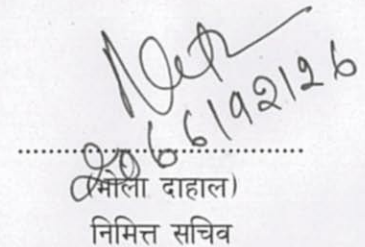 २०६६।१२।२६
....................................
(भोला दाहाल)
निमित्त सचिव